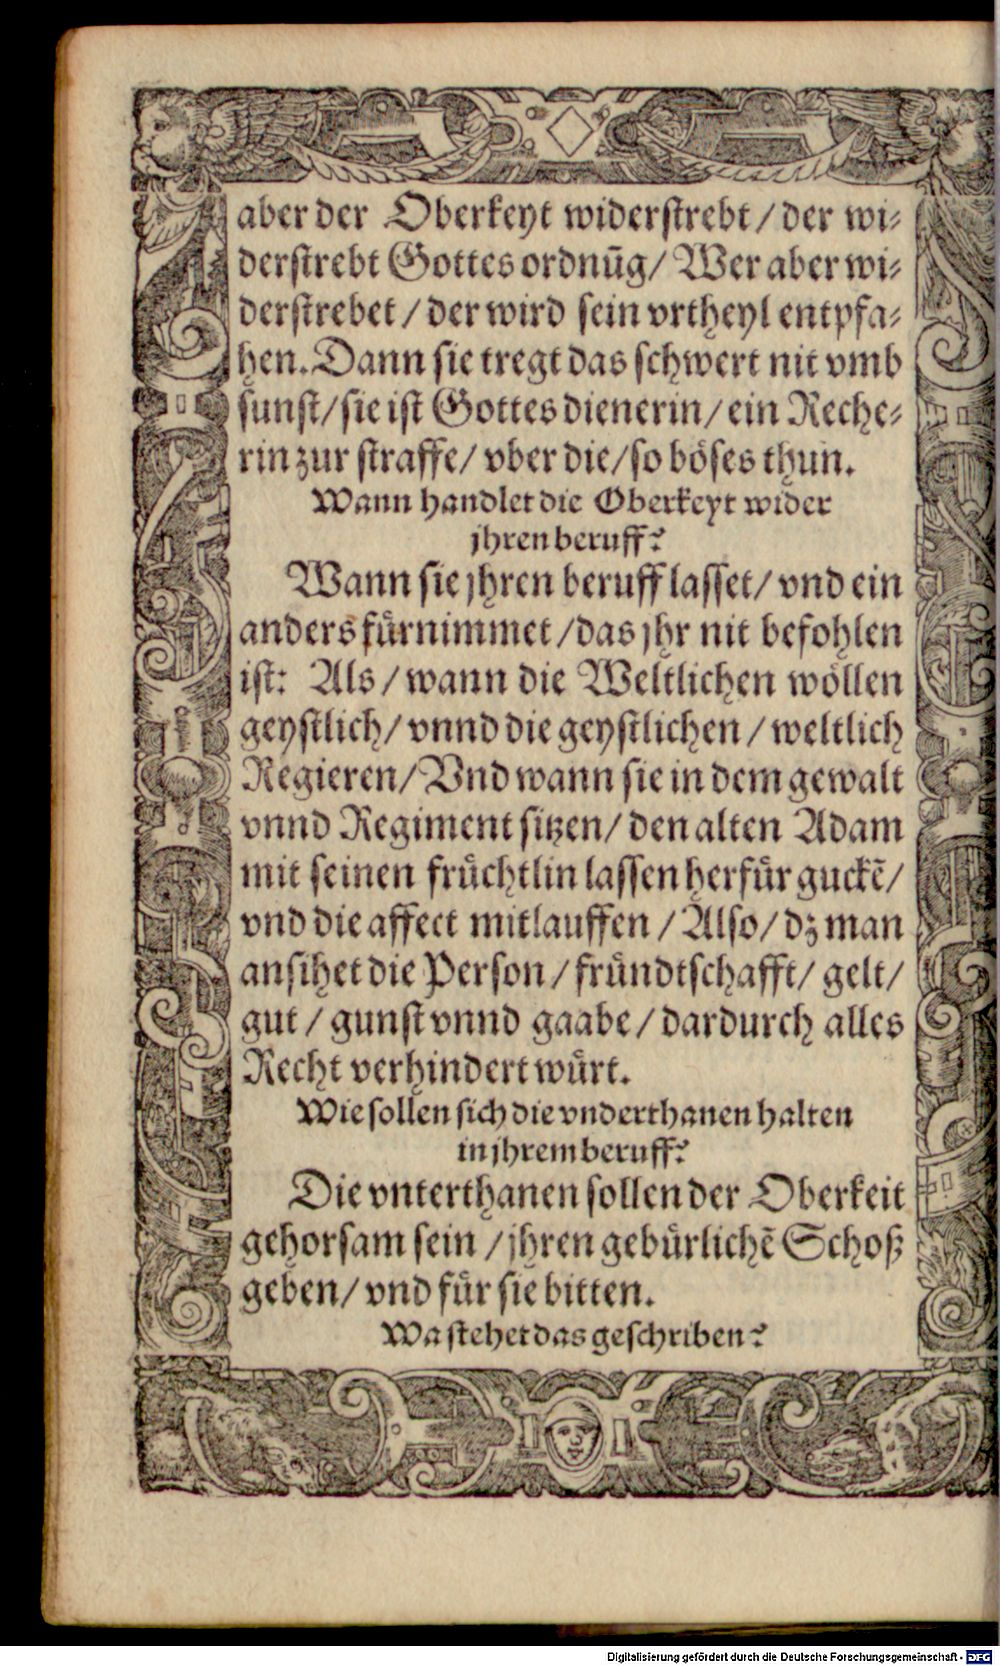 aber der Oberkeyt widerstrebt / der wi-
derstrebt Gottes ordnūg / Wer aber wi-
derstrebet / der wird sein vrtheyl entpfa-
hen. Dann sie tregt das schwert nit vmb
sunst / sie ist Gottes dienerin / ein Reche-
rin zur straffe / vber die / so böses thun.
Wann handlet die Oberkeyt wider
jhren beruff?
Wann sie jhren beruff lasset / vnd ein
anders fürnimmet / das jhr nit befohlen
ist: Als / wann die Weltlichen wöllen
geystlich / vnnd die geystlichen / weltlich
Regieren / Vnd wann sie in dem gewalt
vnnd Regiment sitzen / den alten Adam
mit seinen früchtlin lassen herfür guckē /
vnd die affect mitlauffen / Also / dz man
ansihet die Person / fründtschafft / gelt /
gut / gunst vnnd gaabe / dardurch alles
Recht verhindert würt.
Wie sollen sich die vnderthanen halten
in jhrem beruff?
Die vnterthanen sollen der Oberkeit
gehorsam sein / jhren gebürlichē Schoß
geben / vnd für sie bitten.
Wa stehet das geschriben?
Digitalisierung gefördert durch die Deutsche Forschungsgemeinschaft - DFG